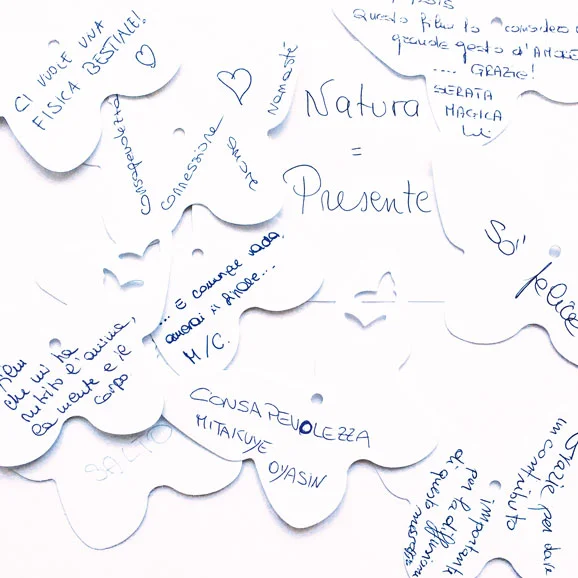 CI VUOLE UNA
FISICA BESTIALE!
Consapevolezza
Connessione
Namasté
Questo film lo considero
grande gesto d'AMORE
.... GRAZIE!
SERATA
MAGICA
Natura
=
Presente
Sii felice
... E comunque vada,
amerai il finale...
M/C.
film
che mi ha
nutrito l'anima,
la mente e il
corpo.
SALTO
CONSAPEVOLEZZA
MITAKUYE
OYASIN
Grazie per dare
un contributo
importante
per la diffusione
di questo
messaggio